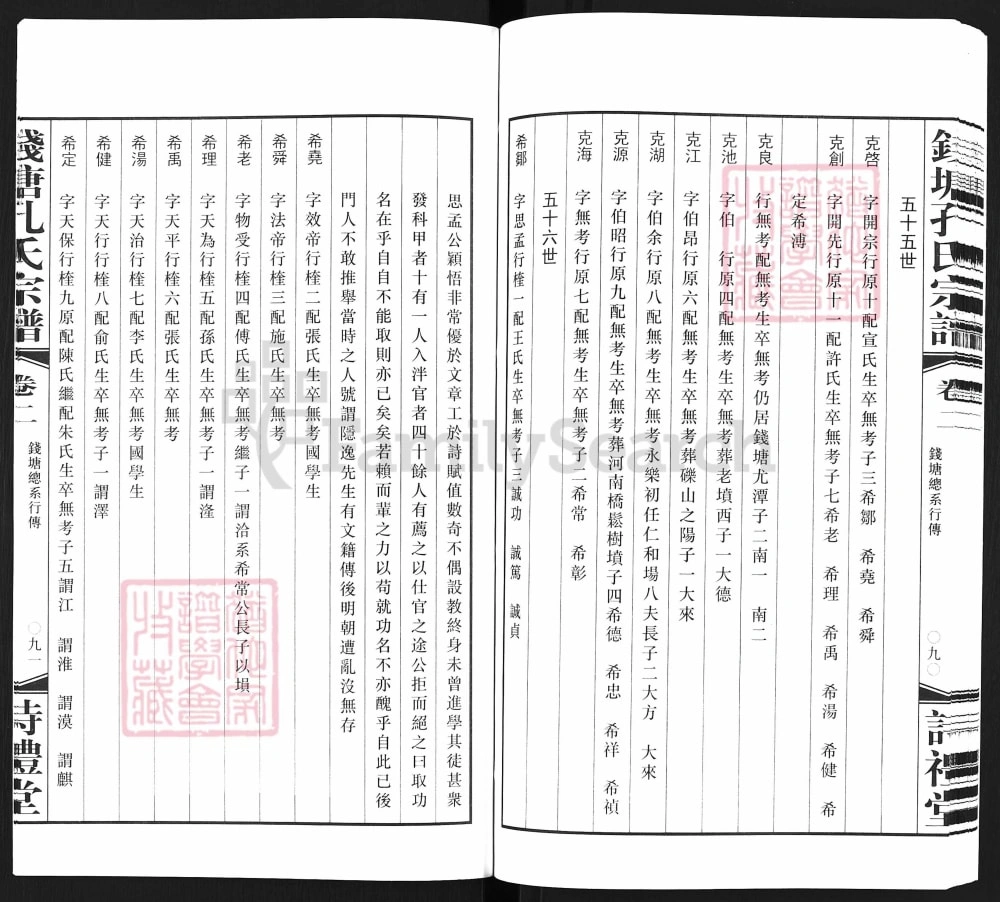 錢塘孔氏宗譜
卷二
錢塘總系行傳
九〇
詩禮堂
五十五世
克啓 字開宗行原十配宣氏生卒無考子三希鄒 希堯 希舜
克創 字開先行原十一配許氏生卒無考子七希老 希理 希禹 希湯 希健 希
定希溥
克良 行無考配無考生卒無考仍居錢塘尤潭子二南一 南二
克池 字伯 行原四配無考生卒無考葬老墳西子一大德
克江 字伯昂行原六配無考生卒無考葬礫山之陽子一大來
克湖 字伯余行原八配無考生卒無考永樂初任仁和場八夫長子二大方 大來
克源 字伯昭行原九配無考生卒無考葬河南橋鬆樹墳子四希德 希忠 希祥 希禎
克海 字無考行原七配無考生卒無考子二希常 希彰
五十六世
希鄒 字思孟行楻一配王氏生卒無考子三誠功 誠篤 誠貞
思孟公穎悟非常優於文章工於詩賦值數奇不偶設教終身未曾進學其徒甚衆
發科甲者十有一人入泮官者四十餘人有薦之以仕官之途公拒而絕之曰取功
名在乎自自不能取則亦已矣矣若賴而輩之力以苟就功名不亦醜乎自此已後
門人不敢推舉當時之人號謂隱逸先生有文籍傳後明朝遭亂沒無存
希堯 字效帝行楻二配張氏生卒無考國學生
希舜 字法帝行楻三配施氏生卒無考
希老 字物受行楻四配傅氏生卒無考繼子一謂治系希常公長子以塤
希理 字天為行楻五配孫氏生卒無考子一謂漨
希禹 字天平行楻六配張氏生卒無考
希湯 字天治行楻七配李氏生卒無考國學生
希健 字天行行楻八配俞氏生卒無考子一謂澤
希定 字天保行楻九原配陳氏繼配朱氏生卒無考子五謂江 謂淮 謂漠 謂麒
錢塘孔氏宗譜
卷二
錢塘總系行傳
〇九一
詩禮堂
FamilySearch